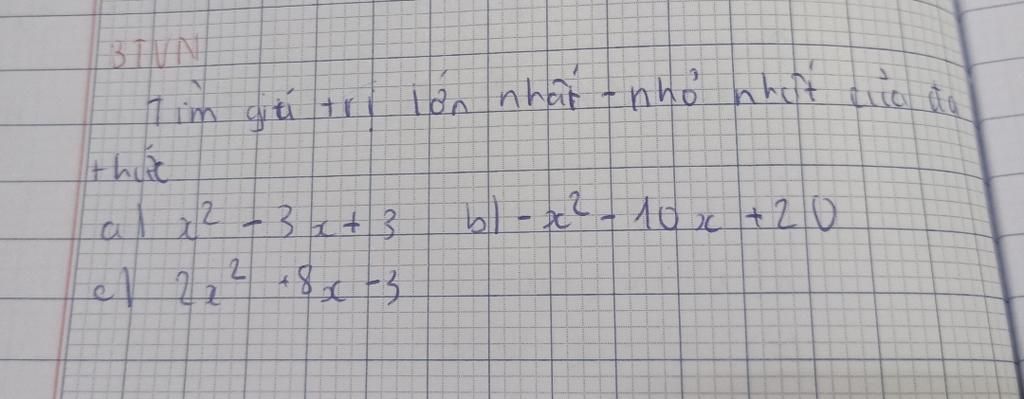 BTVN
Tìm giá trị lớn nhất - nhỏ nhất của đa
thức
a) x² - 3x + 3 b) - x² - 10x + 20
c) 2x² + 8x - 3